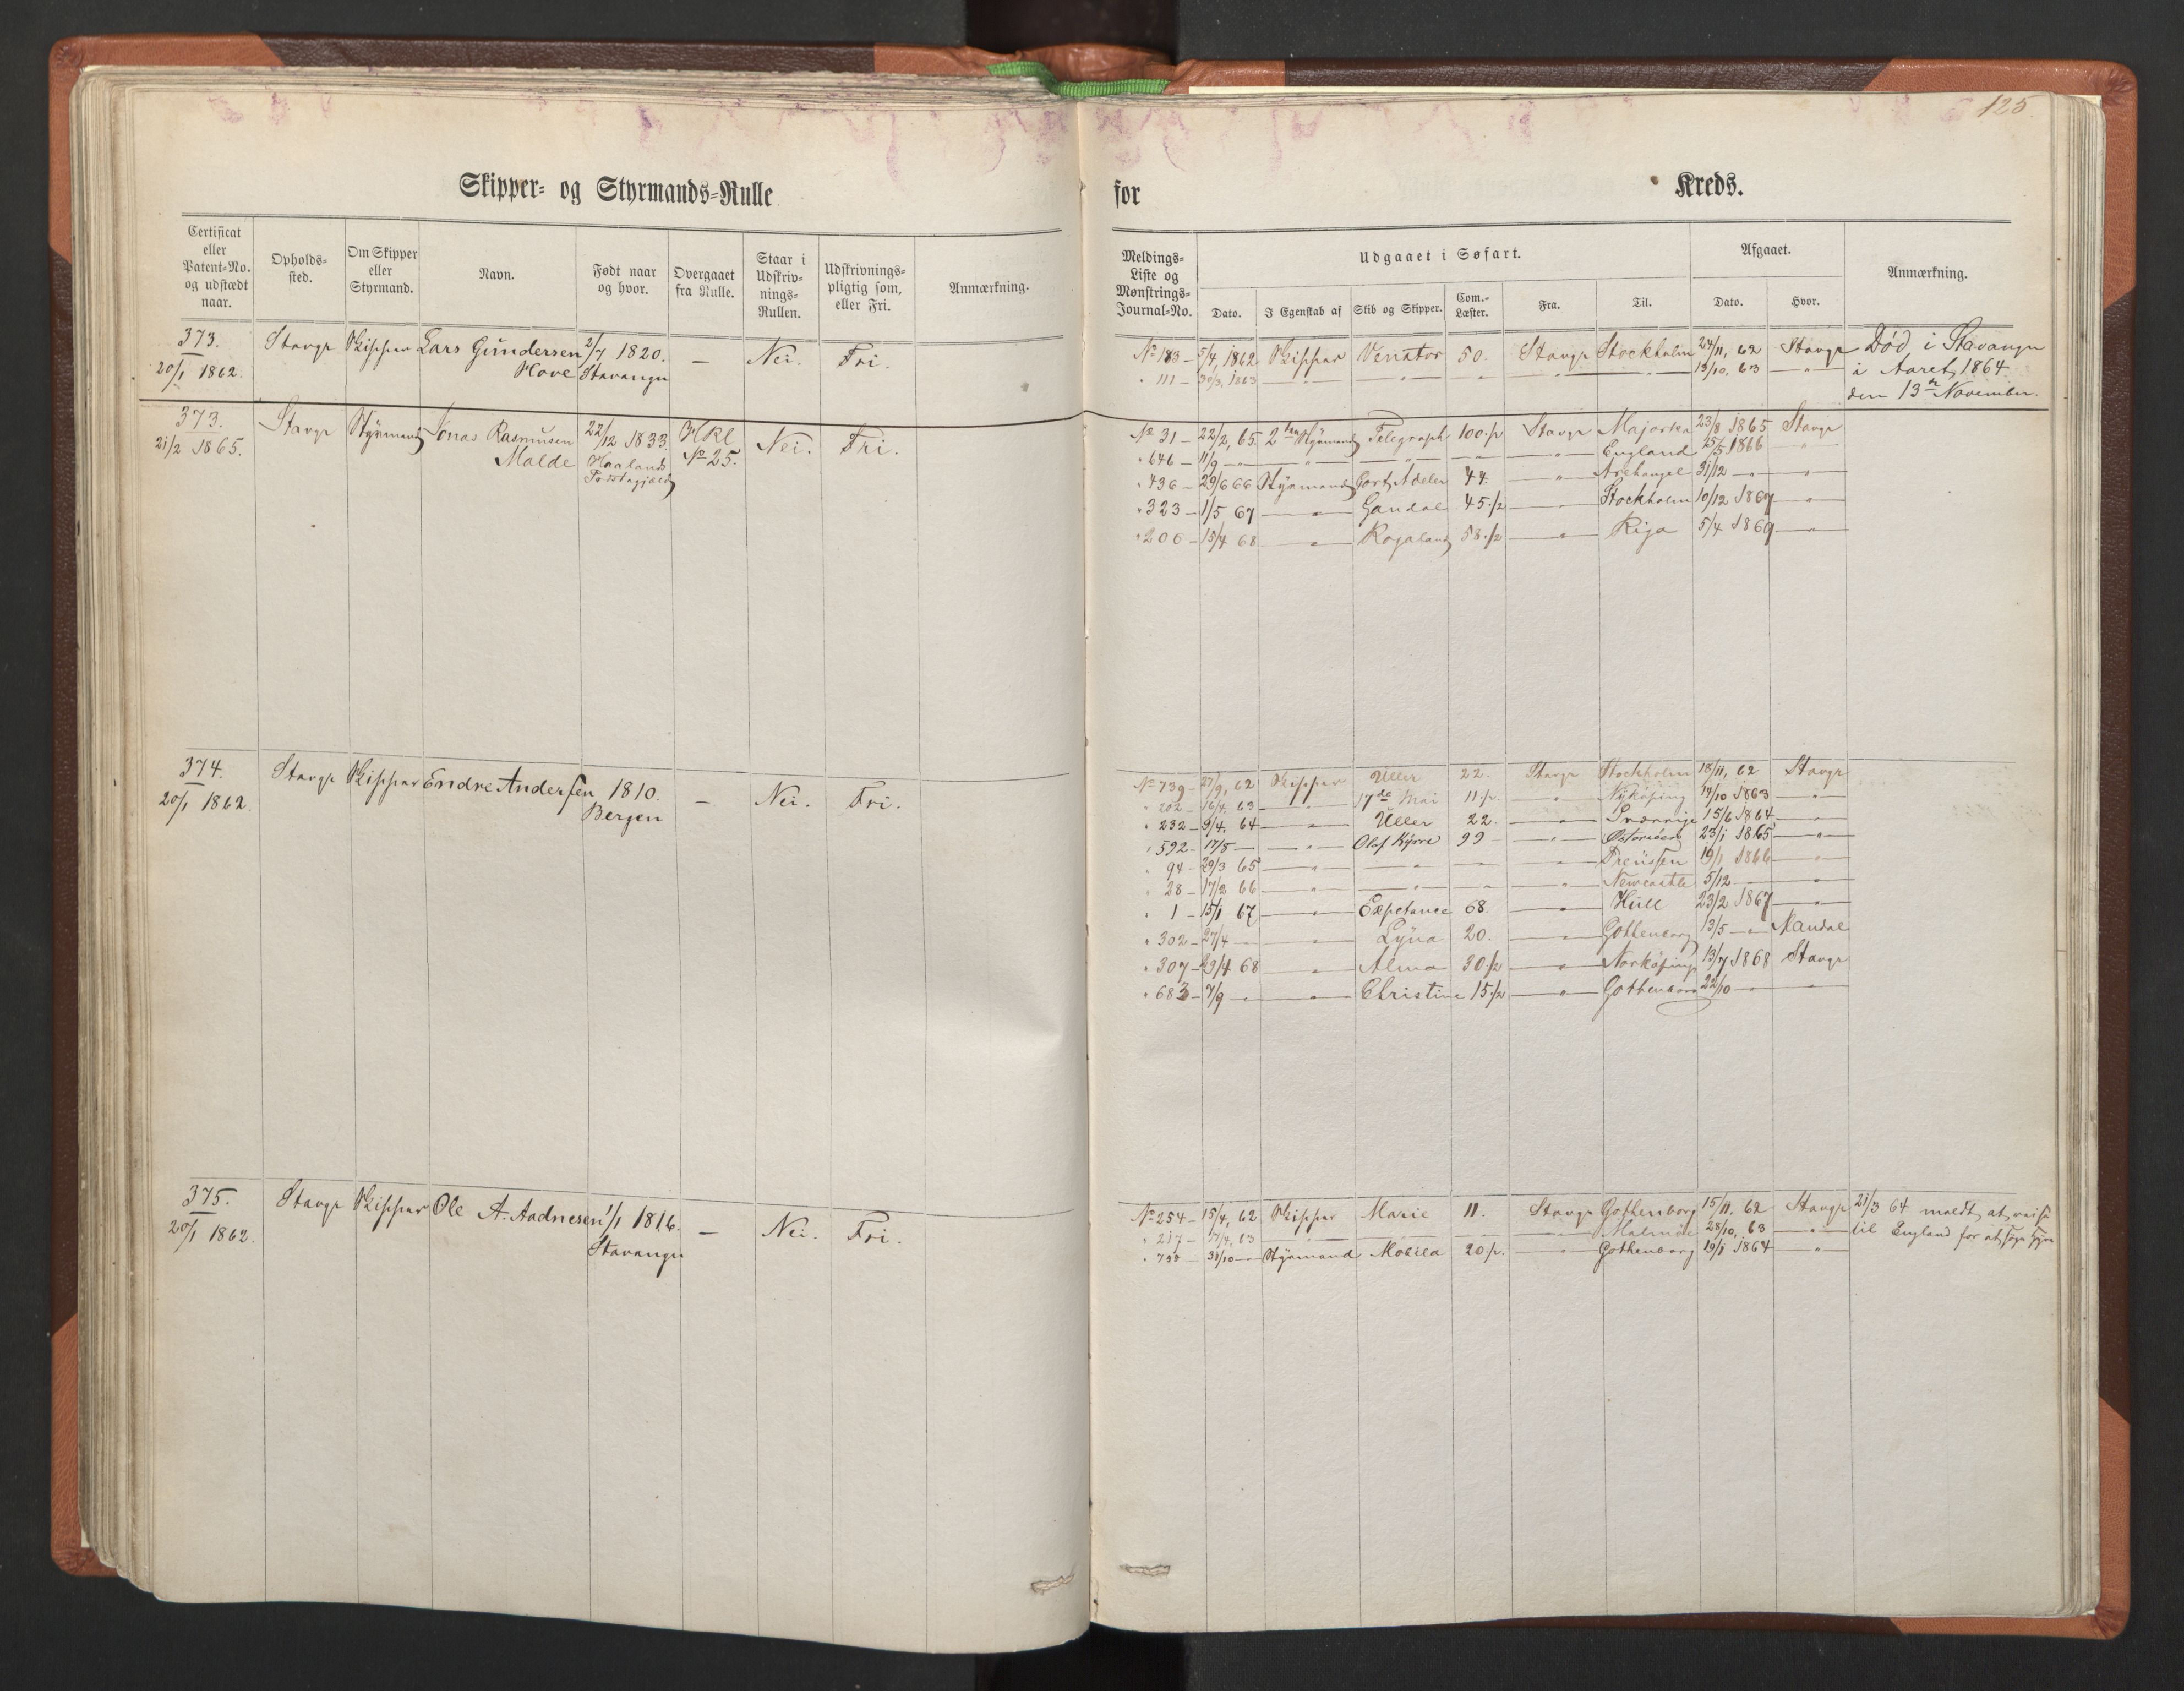 125.
Skipper- og Styrmands-Rulle for Kreds.
Certificat eller Patent-No. og udstædt naar. | Opholds-sted. | Om Skipper eller Styrmand. | Navn. | Født naar og hvor. | Overgaaet fra Rulle. | Staar i Udskriv-nings-Rullen. | Udskrivnings-pligtig som, eller Fri. | Anmærkning.
Meldings-Liste og Mønstrings-Journal-No. | Udgaaet i Søfart. | Afgaaet. | Anmærkning.
Dato. | I Egenskab af | Skib og Skipper. | Com.-Læster. | Fra. | Til. | Dato. | Hvor.
373. Stavgr Skipper Lars Gundersen 2/7 1820. — Nei. Fri.
20/1 1862. Hove Stavanger
No 183 – 5/4, 1862 Skipper Venator 50. Stavgr Stockholm 24/11, 62 Stavgr Død i Stavanger
" 111 – 30/3, 1863 — " — — " — — " — 13/10, 63 — " — i Aaret 1864
den 13de November.
373. Stavgr Styrmand Jonas Rasmusen 22/12 1833. HKl Nei. Fri.
21/2 1865. Malde Haalands No 25.
Præstegjæld
No 31 – 22/2, 65. 2den Styrmand Telegraph 100.½ Stavgr Majorka 23/8 1865 Stavgr
" 646 – 11/9 — " — — " — — " — — " — England 25/5 1866 "
" 436 – 29/6 66 Styrmand Cort Adeler 44. — " — Archangel 31/12 — " — — " —
" 323 – 1/5 67 — " — Gandal 45.½ — " — Stockholm 10/12 1867 — " —
" 206 – 15/4 68 — " — Rogaland 58.½ — " — Riga 5/4 1869 — " —
374. Stavgr Skipper Endre Andersen 1810. — Nei. Fri.
20/1 1862. Bergen
No 739 – 27/9, 62 Skipper Uller 22. Stavgr Stockholm 18/11, 62 Stavgr
" 202 – 16/4, 63 — " — 17de Mai 11.½. — " — Nykøping 14/10 1863 — " —
" 232 – 9/4, 64 — " — Uller 22. — " — 15/6 1864 — " —
" 592 – 17/8 — — " — Olaf Kyrre 99 — " — 23/1 1865 — " —
" 94 – 29/3 65 — " — — " — — " — — " — Preussen 19/1 1866 — " —
" 28 – 17/2 66 — " — — " — — " — " — Newcastle 5/12 — — " —
" 1 – 15/1 67 — " — Expetance 68. — " — Hull 23/2 1867 — " —
" 302 – 27/4 — — " — Lyna 20. — " — Gothenborg 13/5 — " — Mandal
" 307 – 29/4 68 — " — Alma 30.½ — " — Norkøping 13/7 1868 Stavgr
" 683 – 7/9 — " — — " — Christine 15.½ — " — Gothenborg 22/10 — " — — " —
375. Stavgr Skipper Ole A. Aadnesen 1/1 1816. — Nei. Fri.
20/1 1862. Stavanger
No 254 – 15/4, 62 Skipper Marie 11. Stavgr Gothenborg 15/11, 62 Stavgr 21/3 64 meldt at reise
" 217 – 17/4, 63 — " — — " — — " — Malmøe 28/10, 63 — " — til England for at søge Hyre
" 798 – 31/10 — Styrmand Mobila 20.½. — " — Gothenborg 19/1 1864 — " —